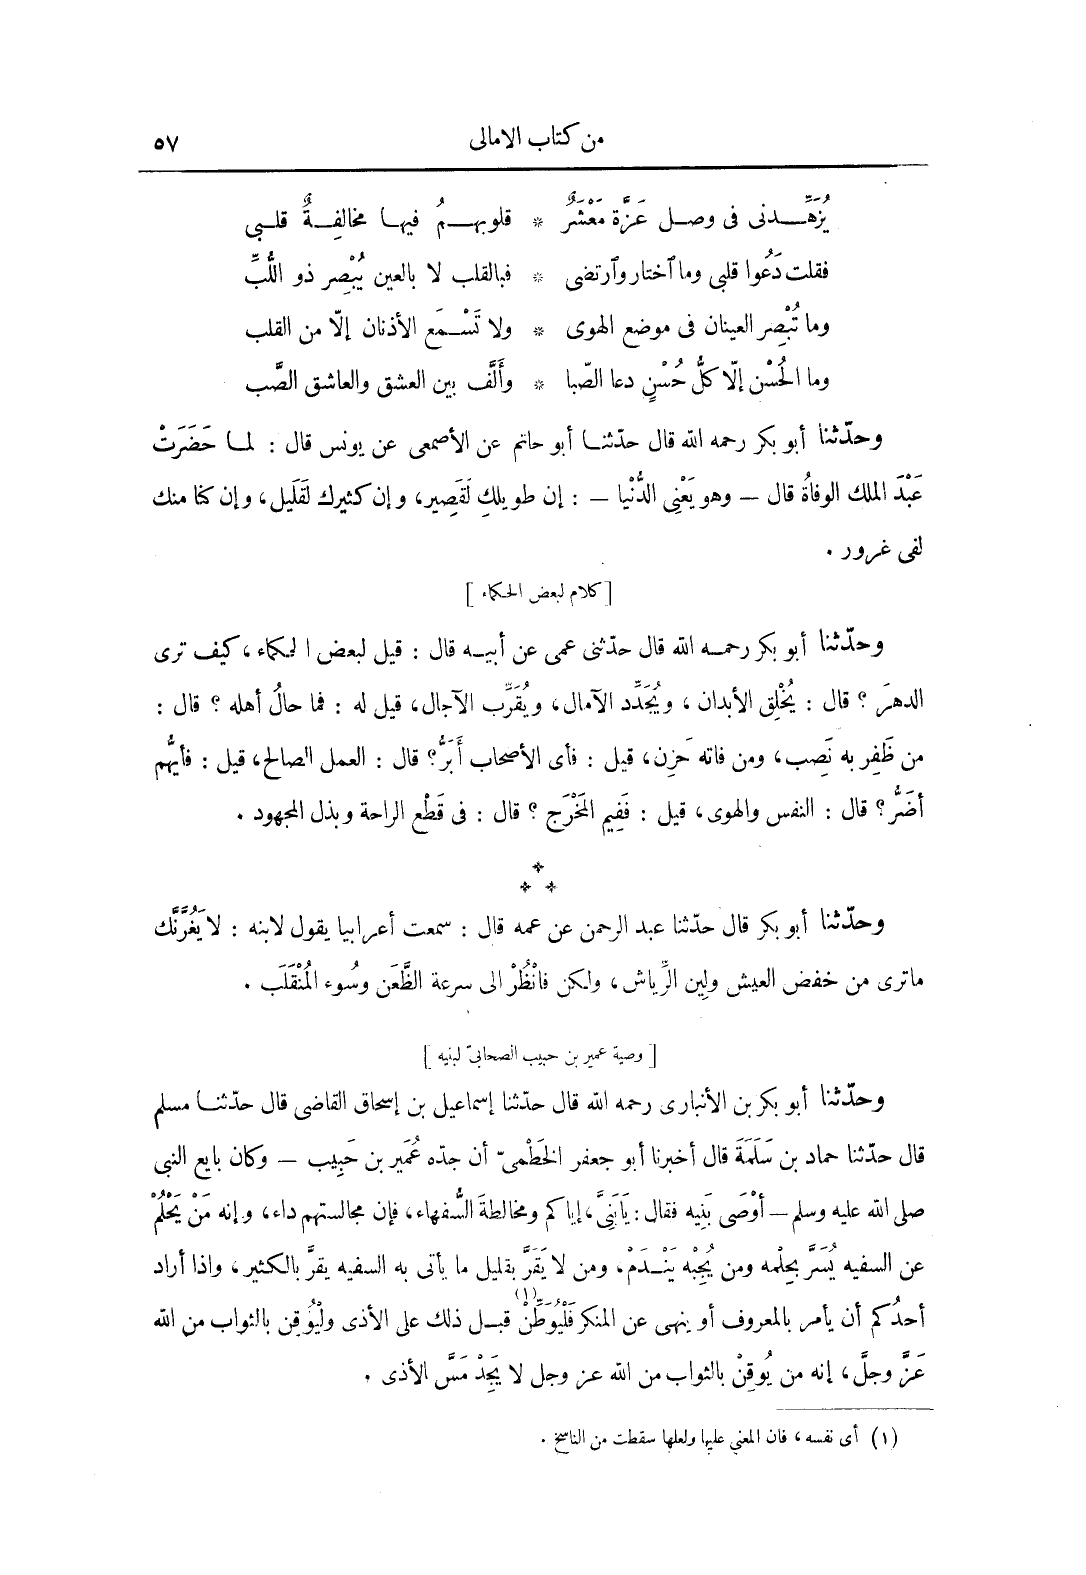 من كتاب الامالى ٥٧
يُزَهِّدنى فى وصل عَزَّة مَعْشَرٌ * قلوبهمُ فيها مخالفةٌ قلبى
فقلت دَعُوا قلبى وما ٱختار وٱرتضى * فبالقلب لا بالعين يُبْصِر ذو اللُّبِّ
وما تُبْصِر العينان فى موضع الهوى * ولا تَسْمَع الأذنان إلّا من القلب
وما الحُسْن إلّا كلُّ حُسْنٍ دعا الصّبا * وأَلَّف بين العشق والعاشق الصَّب
وحدّثنا أبو بكر رحمه الله قال حدّثنا أبو حاتم عن الأصمعى عن يونس قال : لما حَضَرَتْ
عَبْدَ الملك الوفاةُ قال — وهو يَعْنِى الدُّنْيا — : إن طويلكِ لَقَصِير، وإن كثيرك لَقَلِيل، وإن كنا منك
لفى غرور .
[كلام لبعض الحكماء]
وحدّثنا أبو بكر رحمه الله قال حدّثنى عمى عن أبيه قال : قيل لبعض الحكماء، كيف ترى
الدهرَ ؟ قال : يُخْلِق الأبدان ، ويُجَدِّد الآمال، ويُقَرِّب الآجال، قيل له : فما حالُ أهله ؟ قال :
من ظَفِر به نَصِب، ومن فاته حَزِن، قيل : فأى الأصحاب أَبَرُّ؟ قال : العمل الصالح، قيل : فأيهم
أضَرُّ؟ قال : النفس والهوى، قيل : فَفِيم المَخْرَج ؟ قال : فى قَطْع الراحة وبذل المجهود .
وحدّثنا أبو بكر قال حدّثنا عبد الرحمن عن عمه قال : سمعت أعرابيا يقول لابنه : لا يَغُرَّنَّك
ماترى من خفض العيش ولِين الرِّياش، ولكن فانْظُرْ الى سرعة الظَّعَن وسُوء المُنْقَلَب .
[ وصية عمير بن حبيب الصحابىّ لبنيه ]
وحدّثنا أبو بكر بن الأنبارى رحمه الله قال حدّثنا إسماعيل بن إسحاق القاضى قال حدّثنا مسلم
قال حدّثنا حماد بن سَلَمَةَ قال أخبرنا أبو جعفر الخَطْمىّ أن جدّه عُمَير بن حَبِيب — وكان بايع النبى
صلى الله عليه وسلم — أوْصَى بَنِيه فقال: يَابَنِىَّ، إياكم ومخالطةَ السُّفهاء، فإن مجالستهم داء، وإنه مَنْ يَحْلُمْ
عن السفيه يُسَرَّ بحِلْمه ومن يُجِبْه يَنْدَمْ، ومن لا يَقَرَّ بقليل ما يأتى به السفيه يقرَّ بالكثير، واذا أراد
أحدُكم أن يأمر بالمعروف أو ينهى عن المنكر فَلْيُوَطِّنْ(١) قبل ذلك على الأذى ولْيُوقِن بالثواب من الله
عَزَّ وجلَّ، إنه من يُوقِنْ بالثواب من الله عز وجل لا يَجِدْ مَسَّ الأذى .
(١) أى نفسه، فان المعنى عليها ولعلها سقطت من الناسخ .